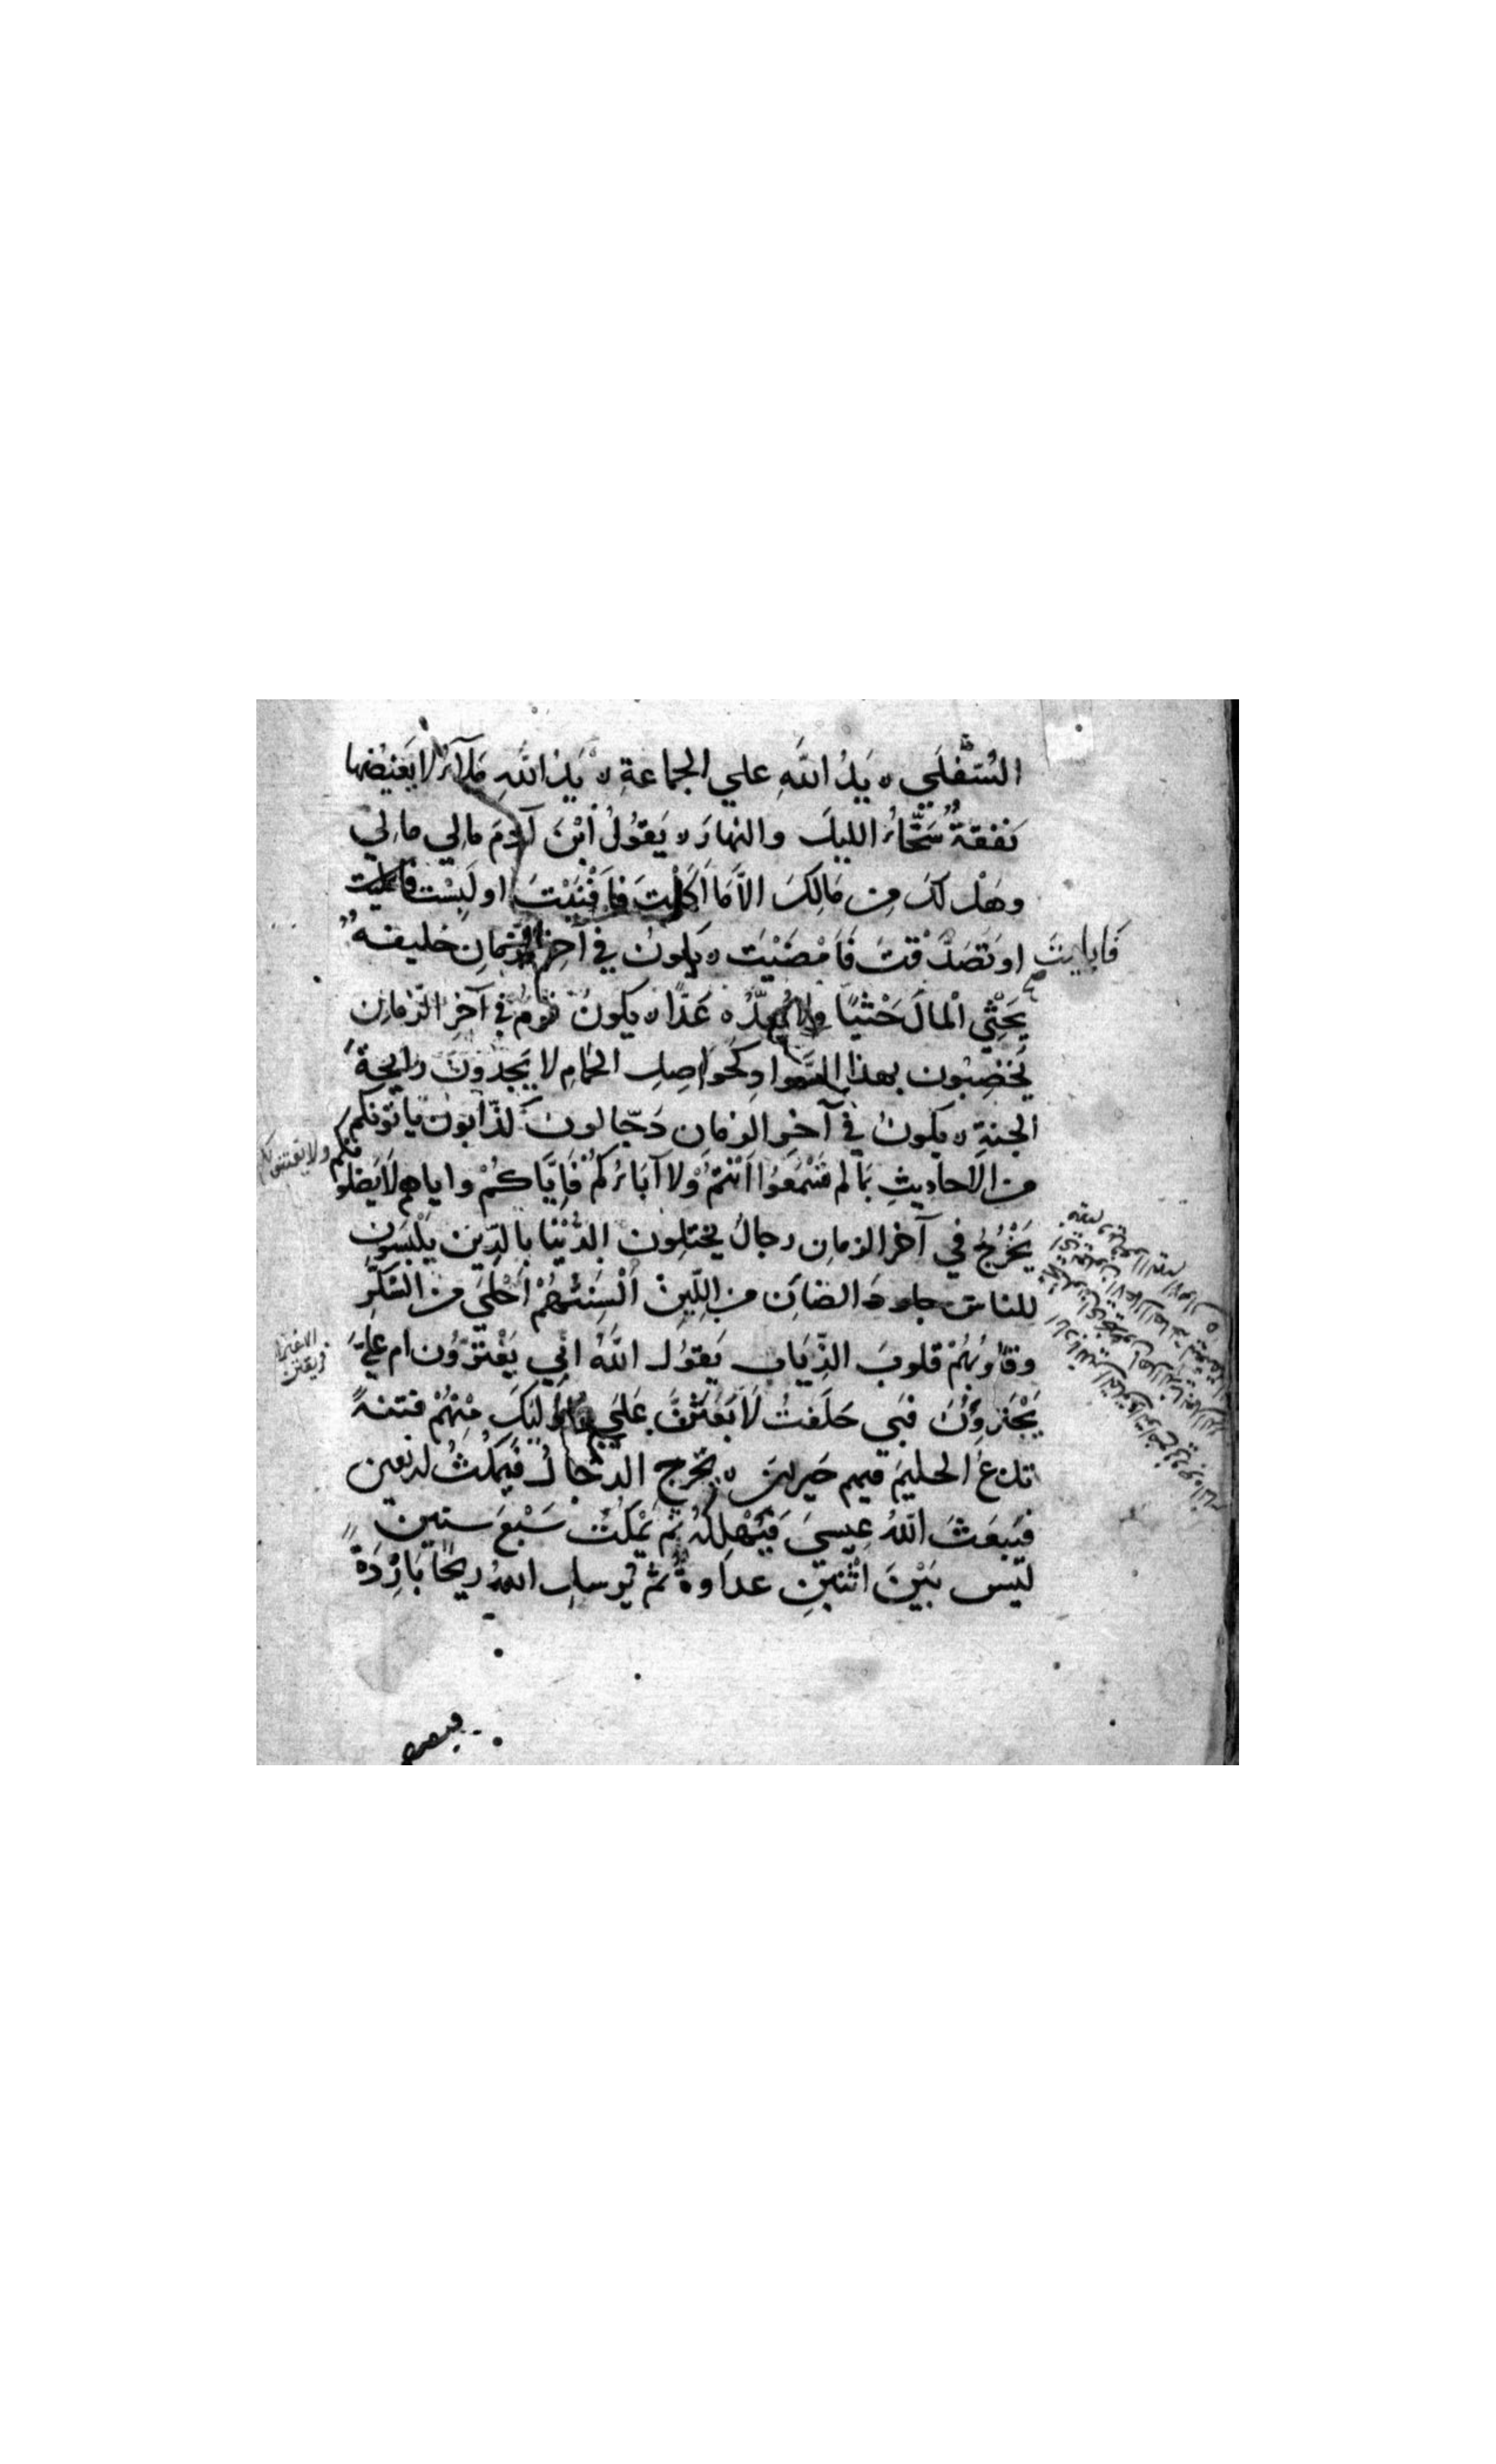 السُّفْلَى ۰ يَدُ اللَّهِ علي الجماعةِ ۰ يَدُ اللَّهِ مَلآءُ لا يَغيضُها
نَفقةٌ سَحَّاءُ الليلَ والنهارَ ۰ يَقُولُ ابْنُ آدَمَ مالي مالي
وهَلْ لكَ مِن مَالِكَ الاَّ مَا اَكَلْتَ فَاَفْنَيْتَ او لَبِسْت فابليت
فَابليتَ
او تَصَدَّقتَ فَامْضَيْتَ ۰ يكونُ في آخِرِ الزمانِ خليفةٌ
يَحْثِي الْمالَ حَثْيًا ولا يَعدُّهُ عَدًّا ۰ يكونُ قومٌ في آخِرِ الزمانِ
يَخضِبُون بهذا السَّوادِ كَحَواصِلِ الحَمامِ لا يَجِدُونَ رايحةَ
الجنةِ ۰ يكونُ في آخرِ الزمانِ دَجّالونَ كذّابونَ يأتونكم
من الاحاديثِ بمَا لم تَسْمَعُوا اَنْتُمْ ولا آبَاؤُكُمْ فَاِيَّاكُمْ واياهم لا يضلو
نكم ولا يفتنونكم
يَخْرُجُ في آخر الزمانِ رجالٌ يختلون الدُّنْيَا بالدِّين يَلْبَسُون
للناسِ جلودَ الضانِ من اللّينِ اَلْسِنَتُهُمْ اَحْلَى من السّكَّرِ
وقلُوبُهُمْ قلوبُ الذِّيابِ يَقوُل اللَّهُ ابي يَغْتَرُّون ام عليَّ
يَجْتَرِؤُنَ فبي حَلَفتُ لَاَبْعَثَنَّ عَلَى اوليكَ مِنْهُمْ فتنةً
تدَعُ الحليمَ فيهم حَيرانَ ۰ يَخرج الدَّجّالُ فيَمكُثُ اربعين
فيَبعَثُ اللَّهُ عِيسىَ فَيُهْلِكُهُ ثم يَمْكُثُ سَبْعَ سنينَ
ليس بَيْنَ اثْنَينِ عداوةٌ ثم يُرسل اللهُ ريحًا بَارِدَةً